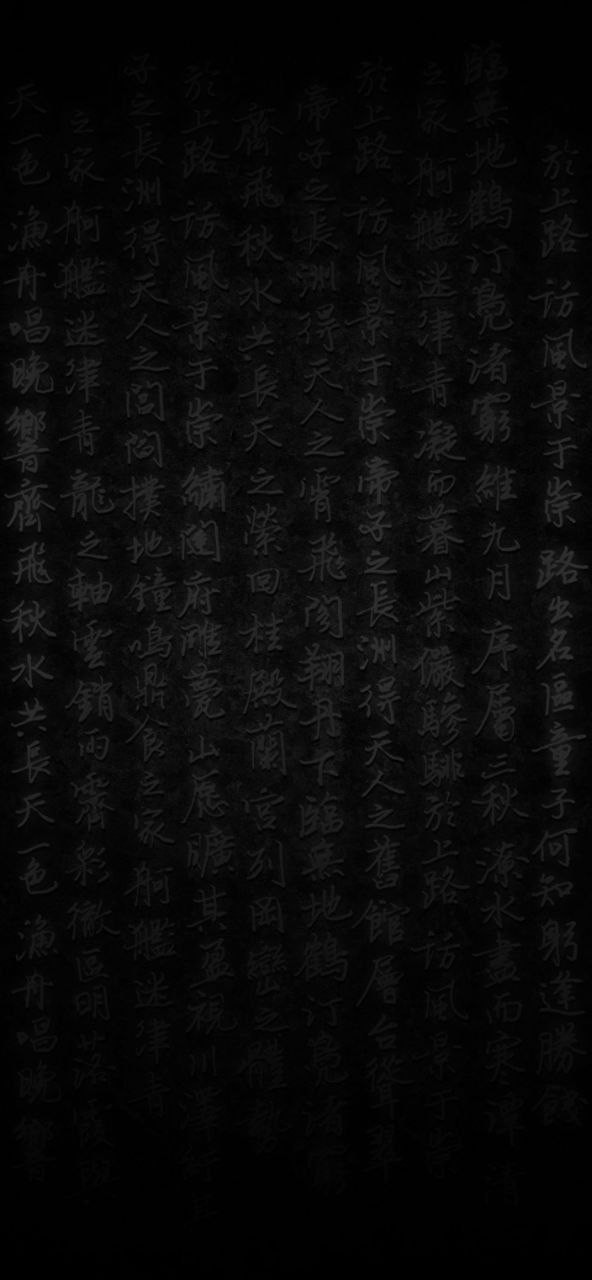 於上路 訪風景于崇 路出名區童子何知躬逢勝餞
臨無地鶴汀鳧渚窮 維九月 序屬三秋 潦水盡而寒潭清
之家舸艦迷津青 凝而暮山紫儼驂騑於上路訪風景于崇
於上路 訪風景于崇 帝子之長洲得天人之舊館層台聳翠
帝子之長洲得天人之霄飛閣翔丹下臨無地鶴汀鳧渚窮
齊飛秋水共長天 之縈回桂殿蘭宮列岡巒之體勢
於上路 訪風景于崇 繡闥俯雕甍山原曠其盈視川澤紆其
子之長洲得天人之 閭閻撲地鐘鳴鼎食之家舸艦迷津青
之家舸艦迷津青龍之軸雲銷雨霽彩徹區明落霞與
天一色 漁舟唱晚響齊飛秋水共長天一色 漁舟唱晚響